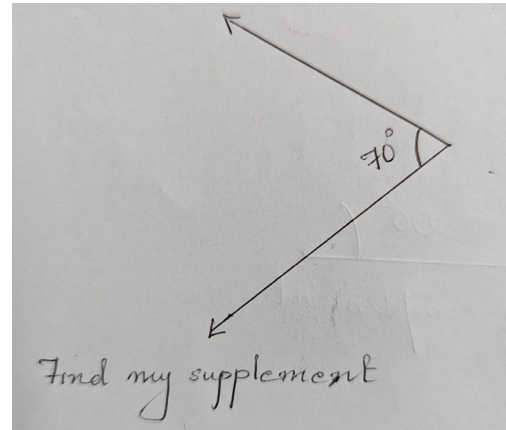 70°
Find my supplement